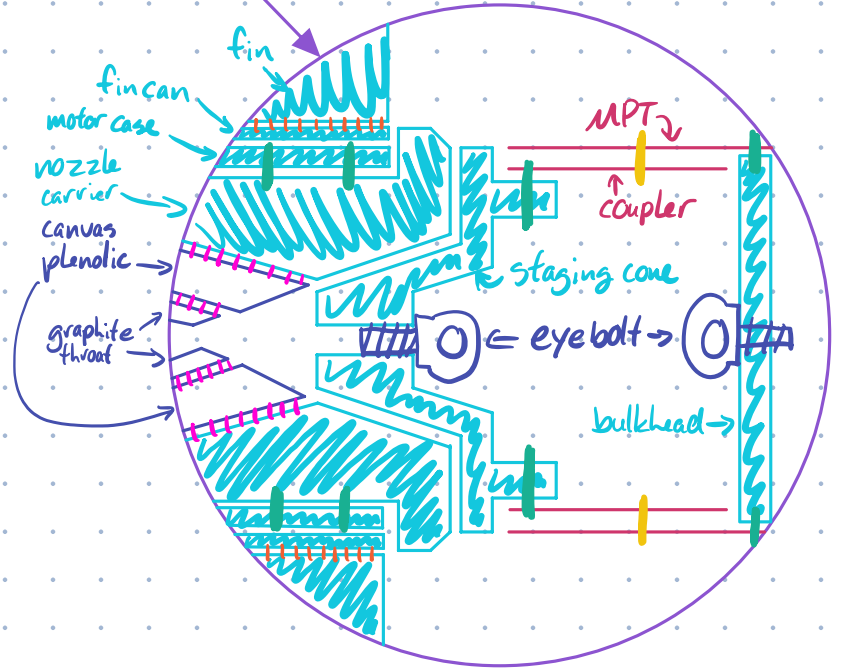 fin
fin can
motor case
nozzle
carrier
canvas
plenolic
graphite
throat
MPT
coupler
staging cone
= eyebolt →
bulkhead